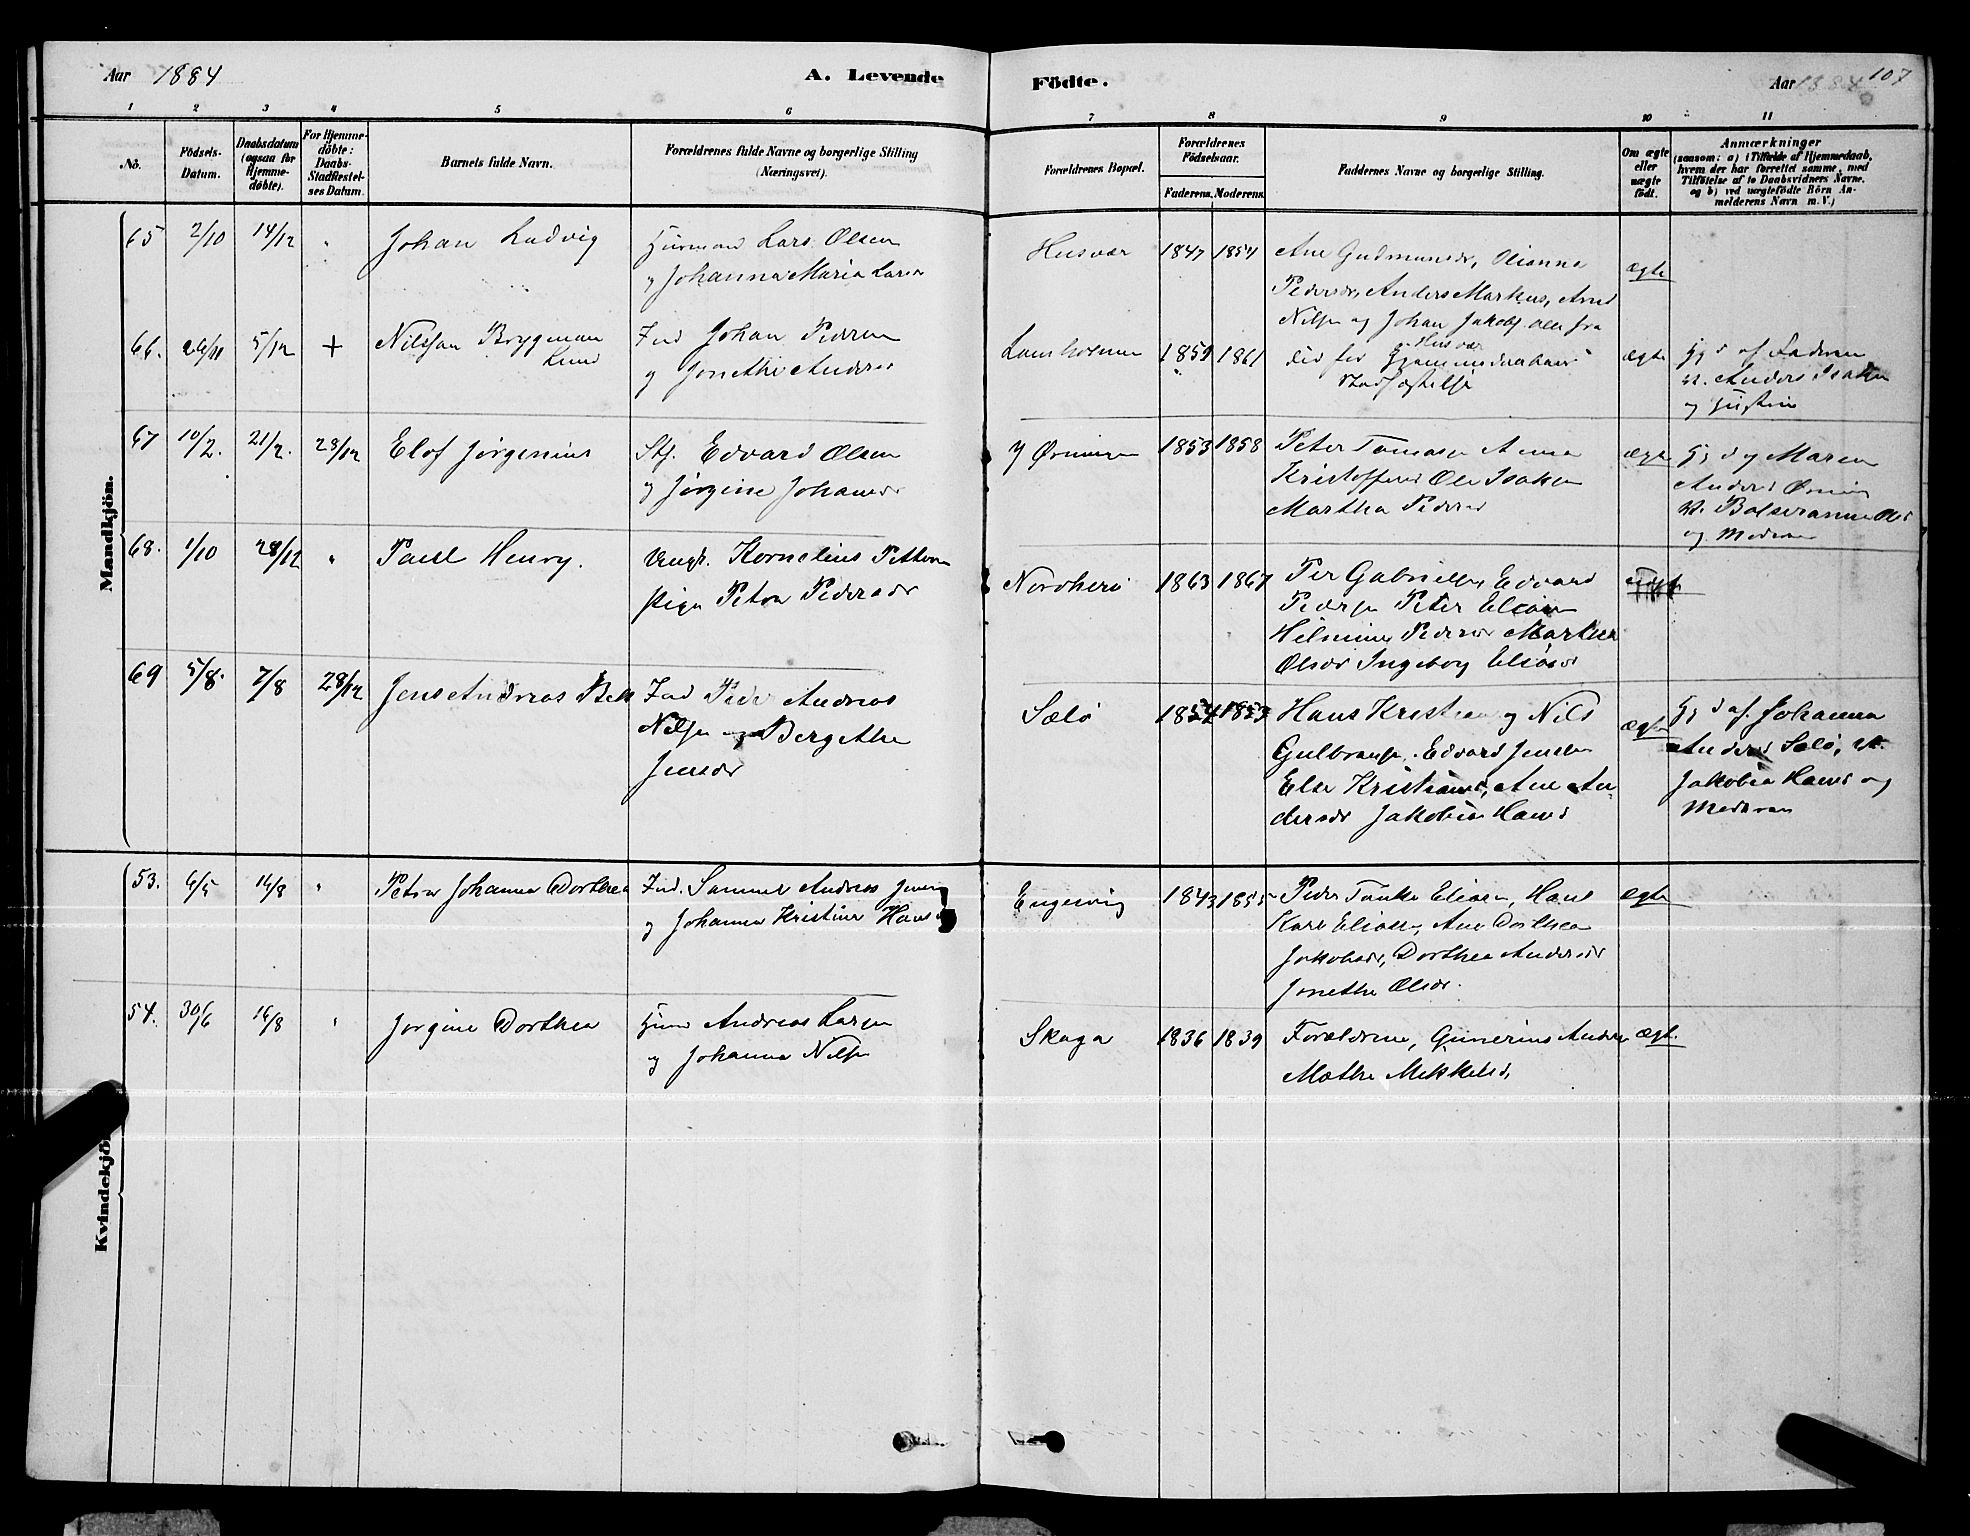 Aar 1884
A. Levende
Födte.
Aar 1884 107
1 2 3 4 5 6 7 8 9 10 11
No.
Födsels-
Datum.
Daabsdatum
(ogsaa for
Hjemme-
döbte).
For Hjemme-
döbte:
Daabs-
Stadfestel-
ses Datum.
Barnets fulde Navn.
Forældrenes fulde Navne og borgerlige Stilling
(Næringsvei).
Forældrenes Bopæl.
Forældrenes
Födselsaar.
Faderens. Moderens.
Faddernes Navne og borgerlige Stilling.
Om ægte
eller
uægte
födt.
Anmærkninger
(saasom: a) i Tilfælde af Hjemmedaab,
hvem der har forrettet samme, med
Tilföielse af to Daabsvidners Navne.
og b) ved uægtefödte Börn An-
melderens Navn m. V.)
Mandkjön.
65 2/10 14/12 " Johan Ludvig
Lars Olsen
og Johanna Maria Lars
Husvær 1847 1854
Ane Gudmundsd, Olianna
Pedersd, Anders Markus, Arnt
Nilsen og Johan Jakobs. alle fra
Husvær
ægte
66. 26/11 5/12 + Nilssan Bryggman
Lund
Ind Johan Peders
og Jonethe Andersd
1859 1861
død før Hjemmedaabens
Stadfæstelse
ægte
Hjd af Faderen
v. Anders Isaksen
og
67 10/2. 21/2. 28/12 Elof Jörgenius
Edvard Olsen
og Jörgine Johansd
1853 1858
Peter Tomass Anna
Kristoffersd Ole Isaksen
Martha Pedersd
ægte
Maren
Andersd
v. Olsd
og Moderen
68. 1/10 28/12 " Paul Henry.
Ungk. Kornelius Petters
Pige Petra Pedersdr
Nordherö 1863 1867
Per Gabrielsen, Edvard
Pedersen Peter Elias
Hilmine Pedersd Martha
Olsdr Ingeborg Eliasd
69 5/8. 7/8 28/12 Jens Andreas Bek
Ind Peder Andreas
Nilsen og Bergethe
Jensdr
Sælö 1854 1853
Hans Kristian og Nils
Gulbrands. Edvard Jensen
Else Kristiansd, Ane An-
dersdr Jakobia Hansd
ægte
Hjd af. Johanna
Andersd Sælö, v.
Jakobia Hansd og
Moderen
Kvindekjö
53. 6/5 16/8 " Petra Johanna Dorthea
Ind. Samuel Andreas Jens
og Johanna Kristine Hansd
Engesvig 1843 1855
Peder Tanke Eliasen, Hans
Karl Eliass, Ane Dorthea
Jakobsdr, Dorthea Andersdr
Jonethe Olsdr.
ægte
54. 30/6 16/8 " Jorgine Dorthea
Andreas Larsen
og Johanna Nils
Skaga 1836 1839
Forældrene, Gunerius Anders
Mathe Mikkelsd,
ægt.